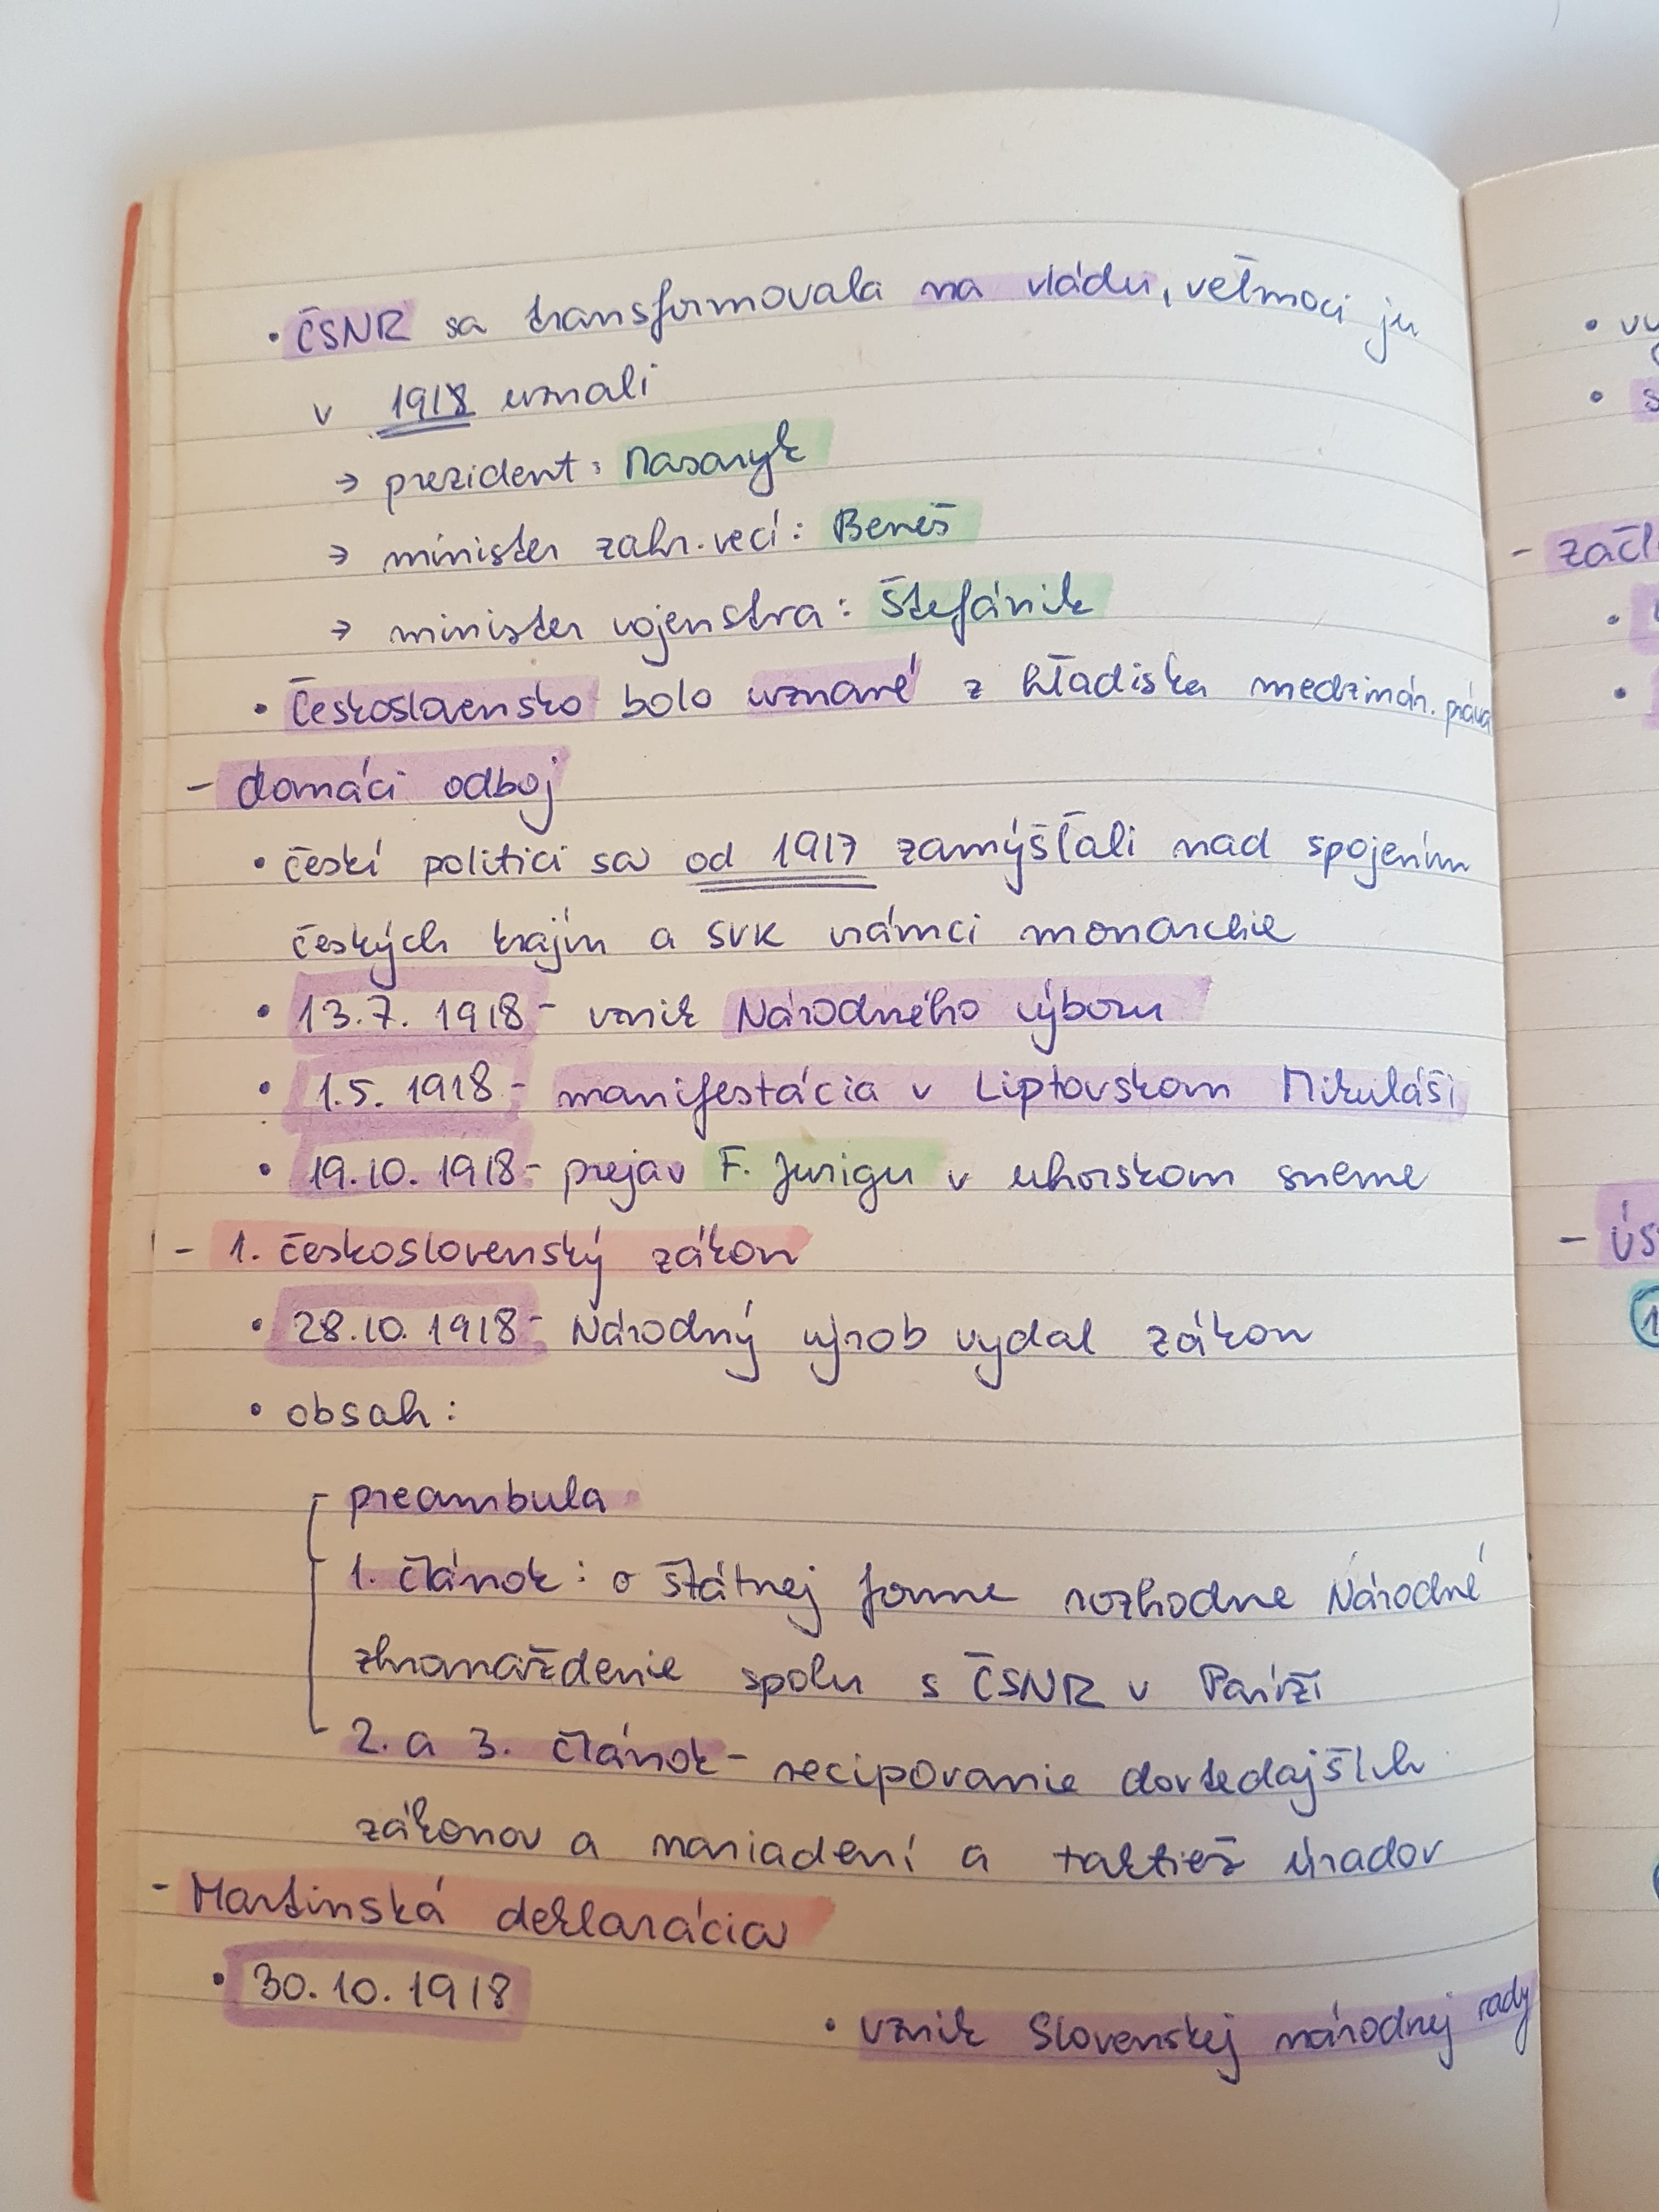 • ČSNR sa transformovala na vládu, veľmoci ju
v 1918 uznali
→ prezident: Masaryk
→ minister zahr. vecí: Beneš
→ minister vojenstva: Štefánik
• Československo bolo uznané z hľadiska medzinár. práva
- domáci odboj
• českí politici sa od 1917 zamýšľali nad spojením
českých krajín a SVK v rámci monarchie
• 13.7. 1918 - vznik Národného výboru
• 1.5. 1918 - manifestácia v Liptovskom Mikuláši
• 19.10. 1918 - prejav F. Jurigu v uhorskom sneme
- 1. československý zákon
• 28.10. 1918 - Národný vývob vydal zákon
• obsah:
- preambula
1. článok: o štátnej forme rozhodne Národné
zhromaždenie spolu s ČSNR v Paríži
2. a 3. článok - recipovanie dovtedajších
zákonov a nariadení a taktiež úradov
- Martinská deklarácia
• 30.10.1918
• vznik Slovenskej národnej rady
- zač
- ús
1